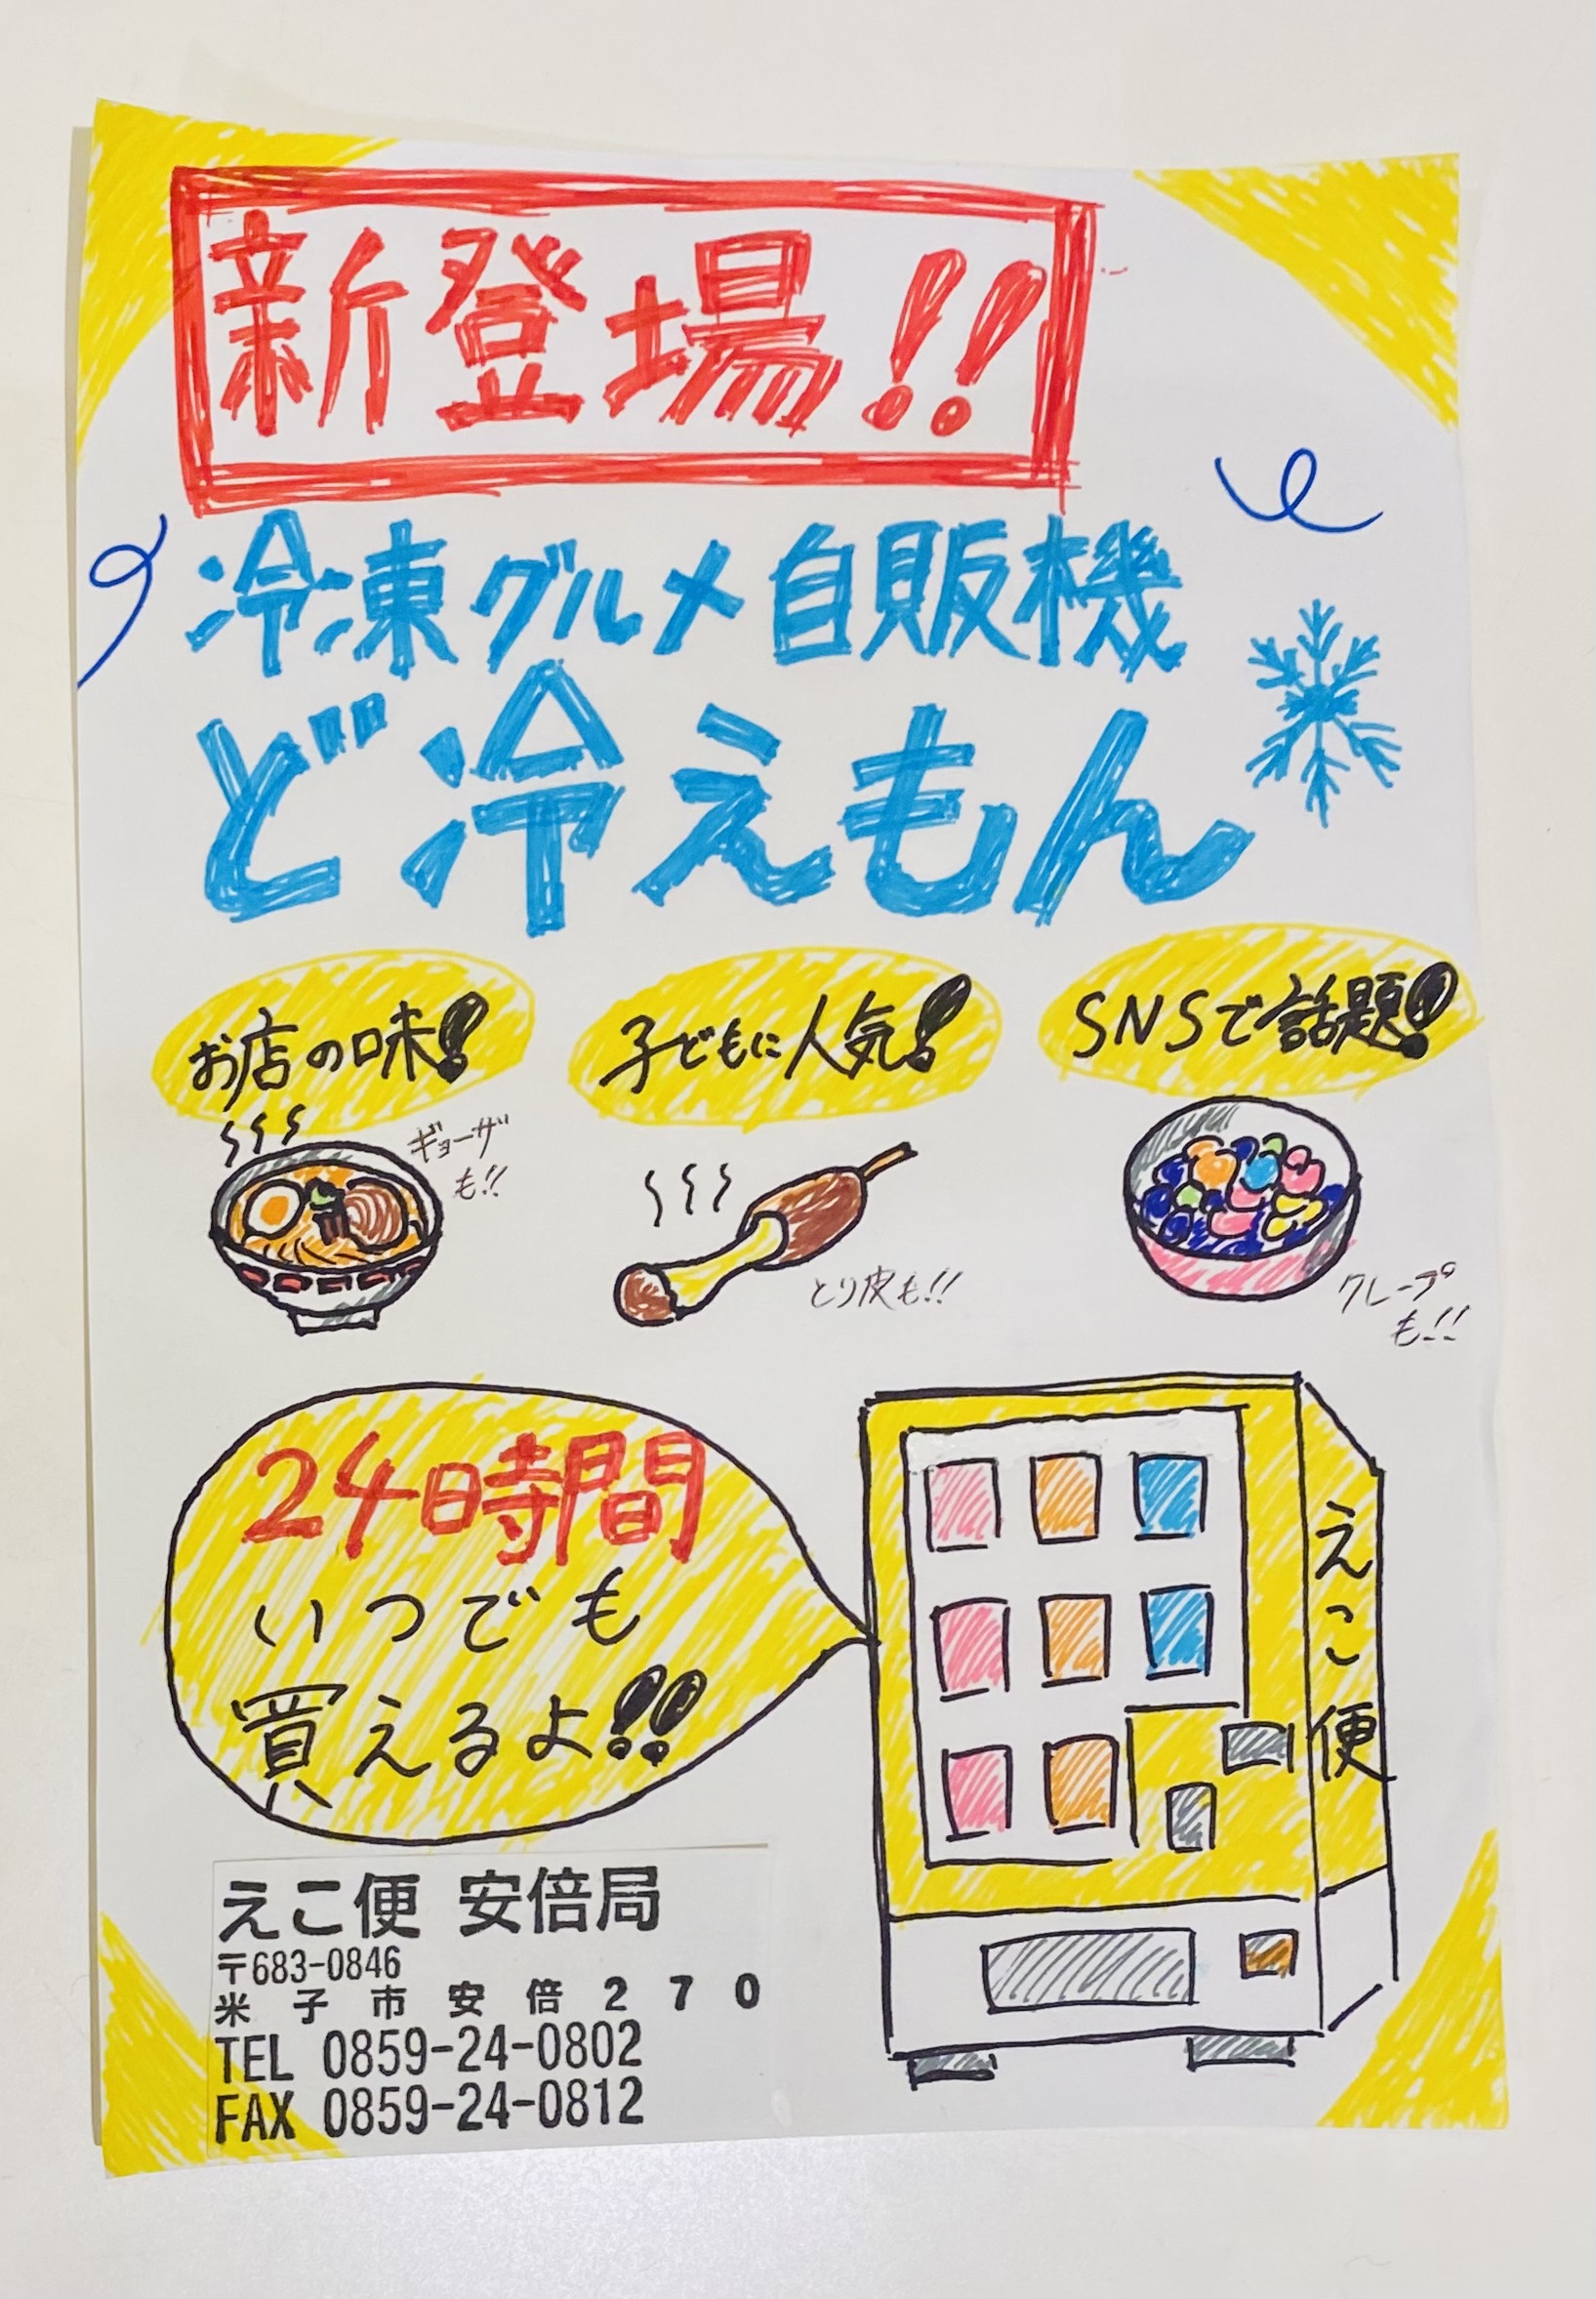 新登場!!
冷凍グルメ自販機
ど冷えもん
お店の味!
子どもに人気!
SNSで話題!
ギョーザ
も!!
とり皮も!!
クレープ
も!!
24時間
いつでも
買えるよ!!
えこ便
えこ便 安倍局
〒683-0846
米子市安倍270
TEL 0859-24-0802
FAX 0859-24-0812